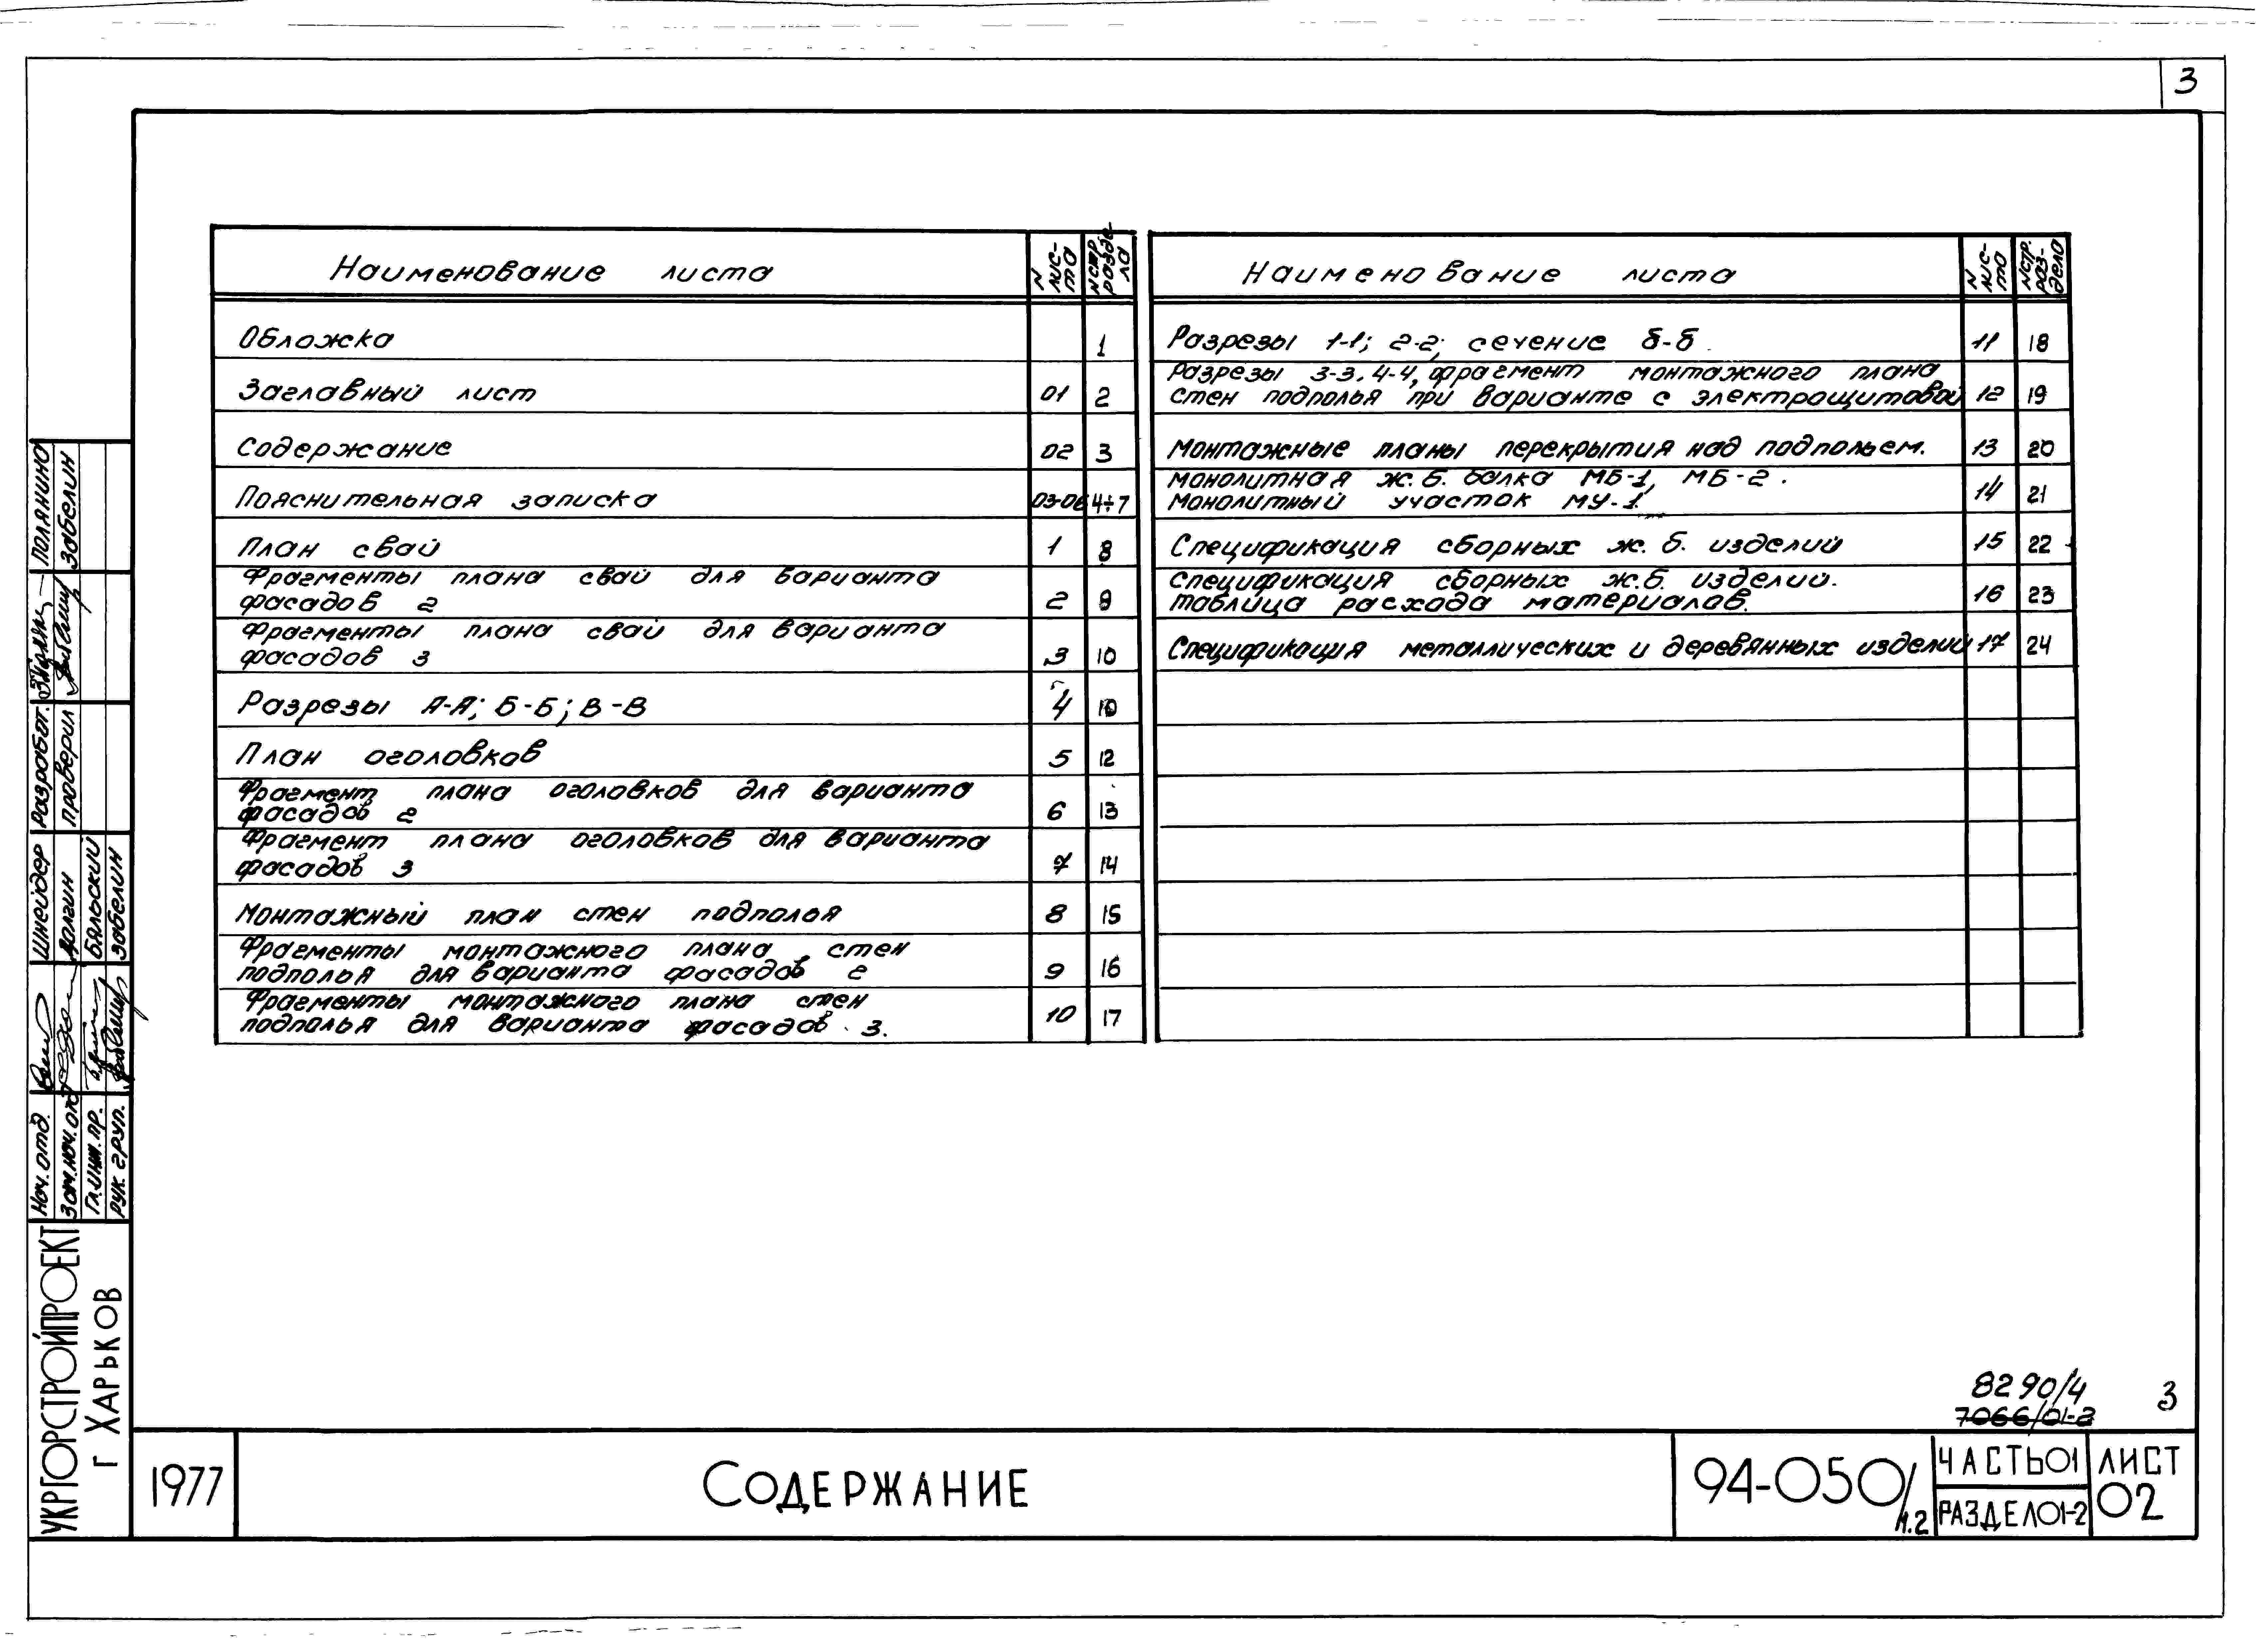 3
Наименование листа
N лис-
та
N стр.
разде-
ла
Обложка 1
Заглавный лист 01 2
Содержание 02 3
Пояснительная записка 03-06 4÷7
План свай 1 8
Фрагменты плана свай для варианта
фасадов 2 2 9
Фрагменты плана свай для варианта
фасадов 3 3 10
Разрезы А-А; Б-Б; В-В 4 10
План оголовков 5 12
Фрагмент плана оголовков для варианта
фасадов 2 6 13
Фрагмент плана оголовков для варианта
фасадов 3 7 14
Монтажный план стен подполья 8 15
Фрагменты монтажного плана стен
подполья для варианта фасадов 2 9 16
Фрагменты монтажного плана стен
подполья для варианта фасадов 3. 10 17
Наименование листа
N
лис-
та
N стр.
раз-
дела
Разрезы 1-1; 2-2; сечение б-б. 11 18
Разрезы 3-3, 4-4, фрагмент монтажного плана
стен подполья при варианте с электрощитовой 12 19
Монтажные планы перекрытия над подпольем. 13 20
Монолитная ж.б. балка МБ-1, МБ-2.
Монолитный участок МУ-1. 14 21
Спецификация сборных ж.б. изделий 15 22
Спецификация сборных ж.б. изделий.
Таблица расхода материалов. 16 23
Спецификация металлических и деревянных изделий 17 24
Полянино
Забелин
Разработ.
Проверил
Шнейдер
Долгин
Бяльский
Забелин
Нач. отд.
Зам. нач. отд
Гл. инж. пр.
Рук. груп.
УКРГОРСТРОЙПРОЕКТ
г Харьков
8290/4 3
7066/01-2
1977
Содержание
94-050/1.2
Часть 01
Раздел 01-2
Лист
02